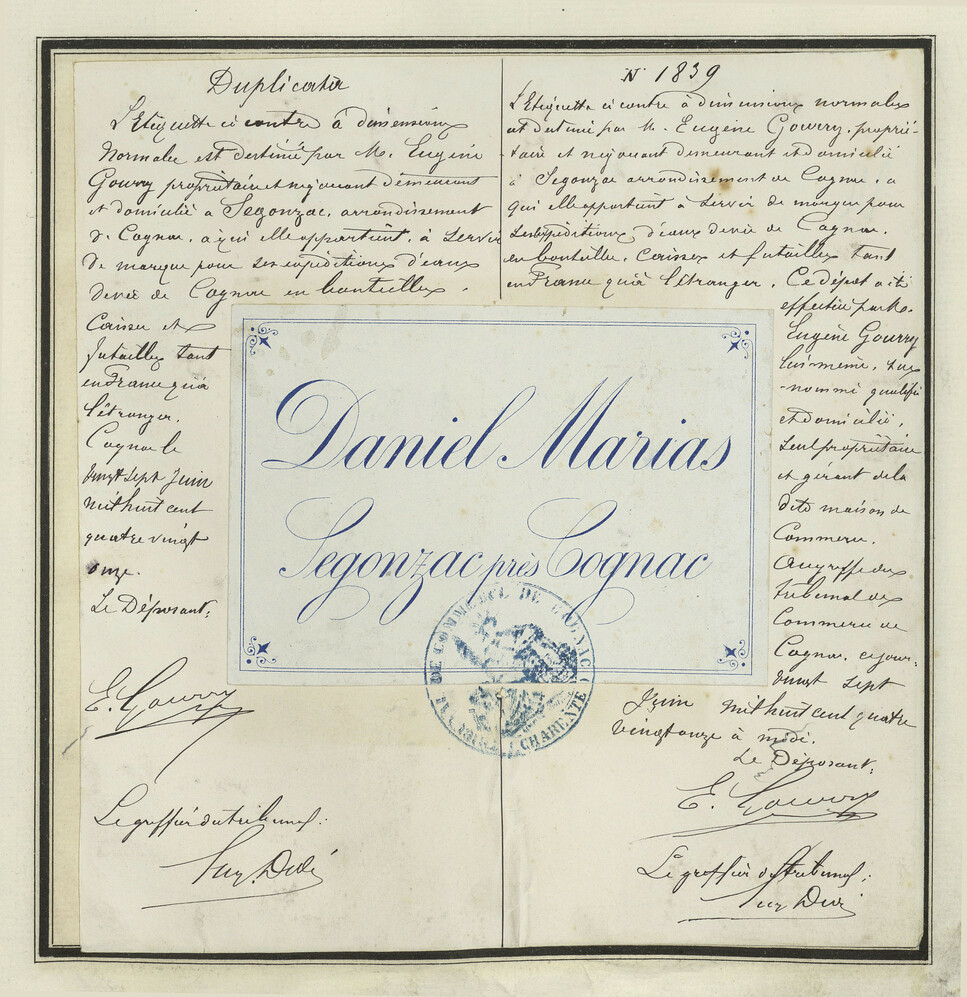 Duplicata
L'Etiquette ci contre à dimensions
Normales est destiné par M. Eugène
Gourry propriétaire et négociant demeurant
et domicilié à Segonzac, arrondissement
de Cognac, à qui elle appartient, à servir
de marque pour ses expéditions d'eaux
devie de Cognac en bouteilles.
Caisses et
futailles tant
en France qu'à
l'étranger.
Cognac le
vingt sept Juin
mil huit cent
quatre vingt
onze.
Le Déposant,
E. Gourry
Le greffier du tribunal:
N° 1839
L'Etiquette ci contre à dimensions normales
est destiné par M. Eugène Gourry, proprié-
-taire et négociant demeurant et domicilié
à Segonzac arrondissement de Cognac, a
qui elle appartient à servir de marque pour
ses expéditions d'eaux devie de Cognac.
en bouteilles, Caisses et futailles tant
en France qu'à l'étranger. Ce dépot a été
effectué par M.
Eugène Gourry
lui même, sus
-nommé qualifié
et domicilié,
seul propriétaire
et gérant de la
dite maison de
Commerce.
Au greffe du
tribunal de
Commerce de
Cognac, ce jour,
vingt sept
Juin mil huit cent quatre
vingt onze à midi.
Le Déposant,
E. Gourry
Le greffier du tribunal:
Daniel Marias
Segonzac près Cognac
TRIBUNAL DE COMMERCE DE COGNAC (CHARENTE)